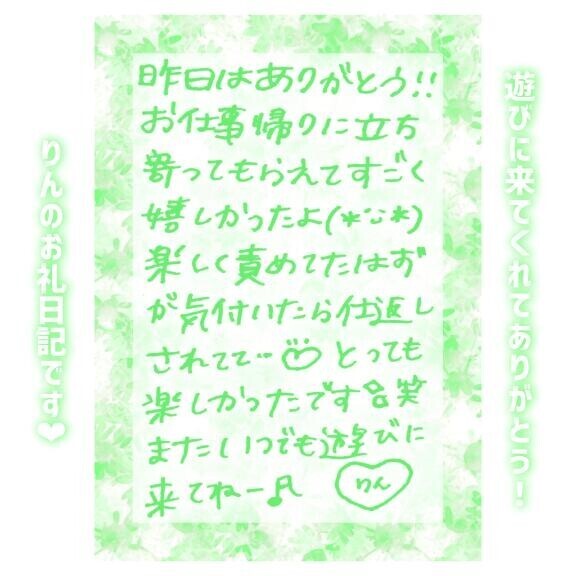 遊びに来てくれてありがとう！
昨日はありがとう!!
お仕事帰りに立ち
寄ってもらえてすごく
嬉しかったよ(*ᵕ̈*)
楽しく責めてたはず
が気付いたら仕返し
されてて…♡とっても
楽しかったです笑
またいつでも遊びに
来てねー♫ りん
りんのお礼日記です❤